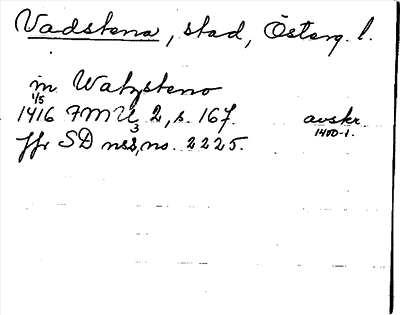 Vadstena, stad, Österg. l.
in Watzsteno
1/5
1416 FMU 2, s. 167. avskr.
1400-t.
Jfr SD ns 3, no. 2225.